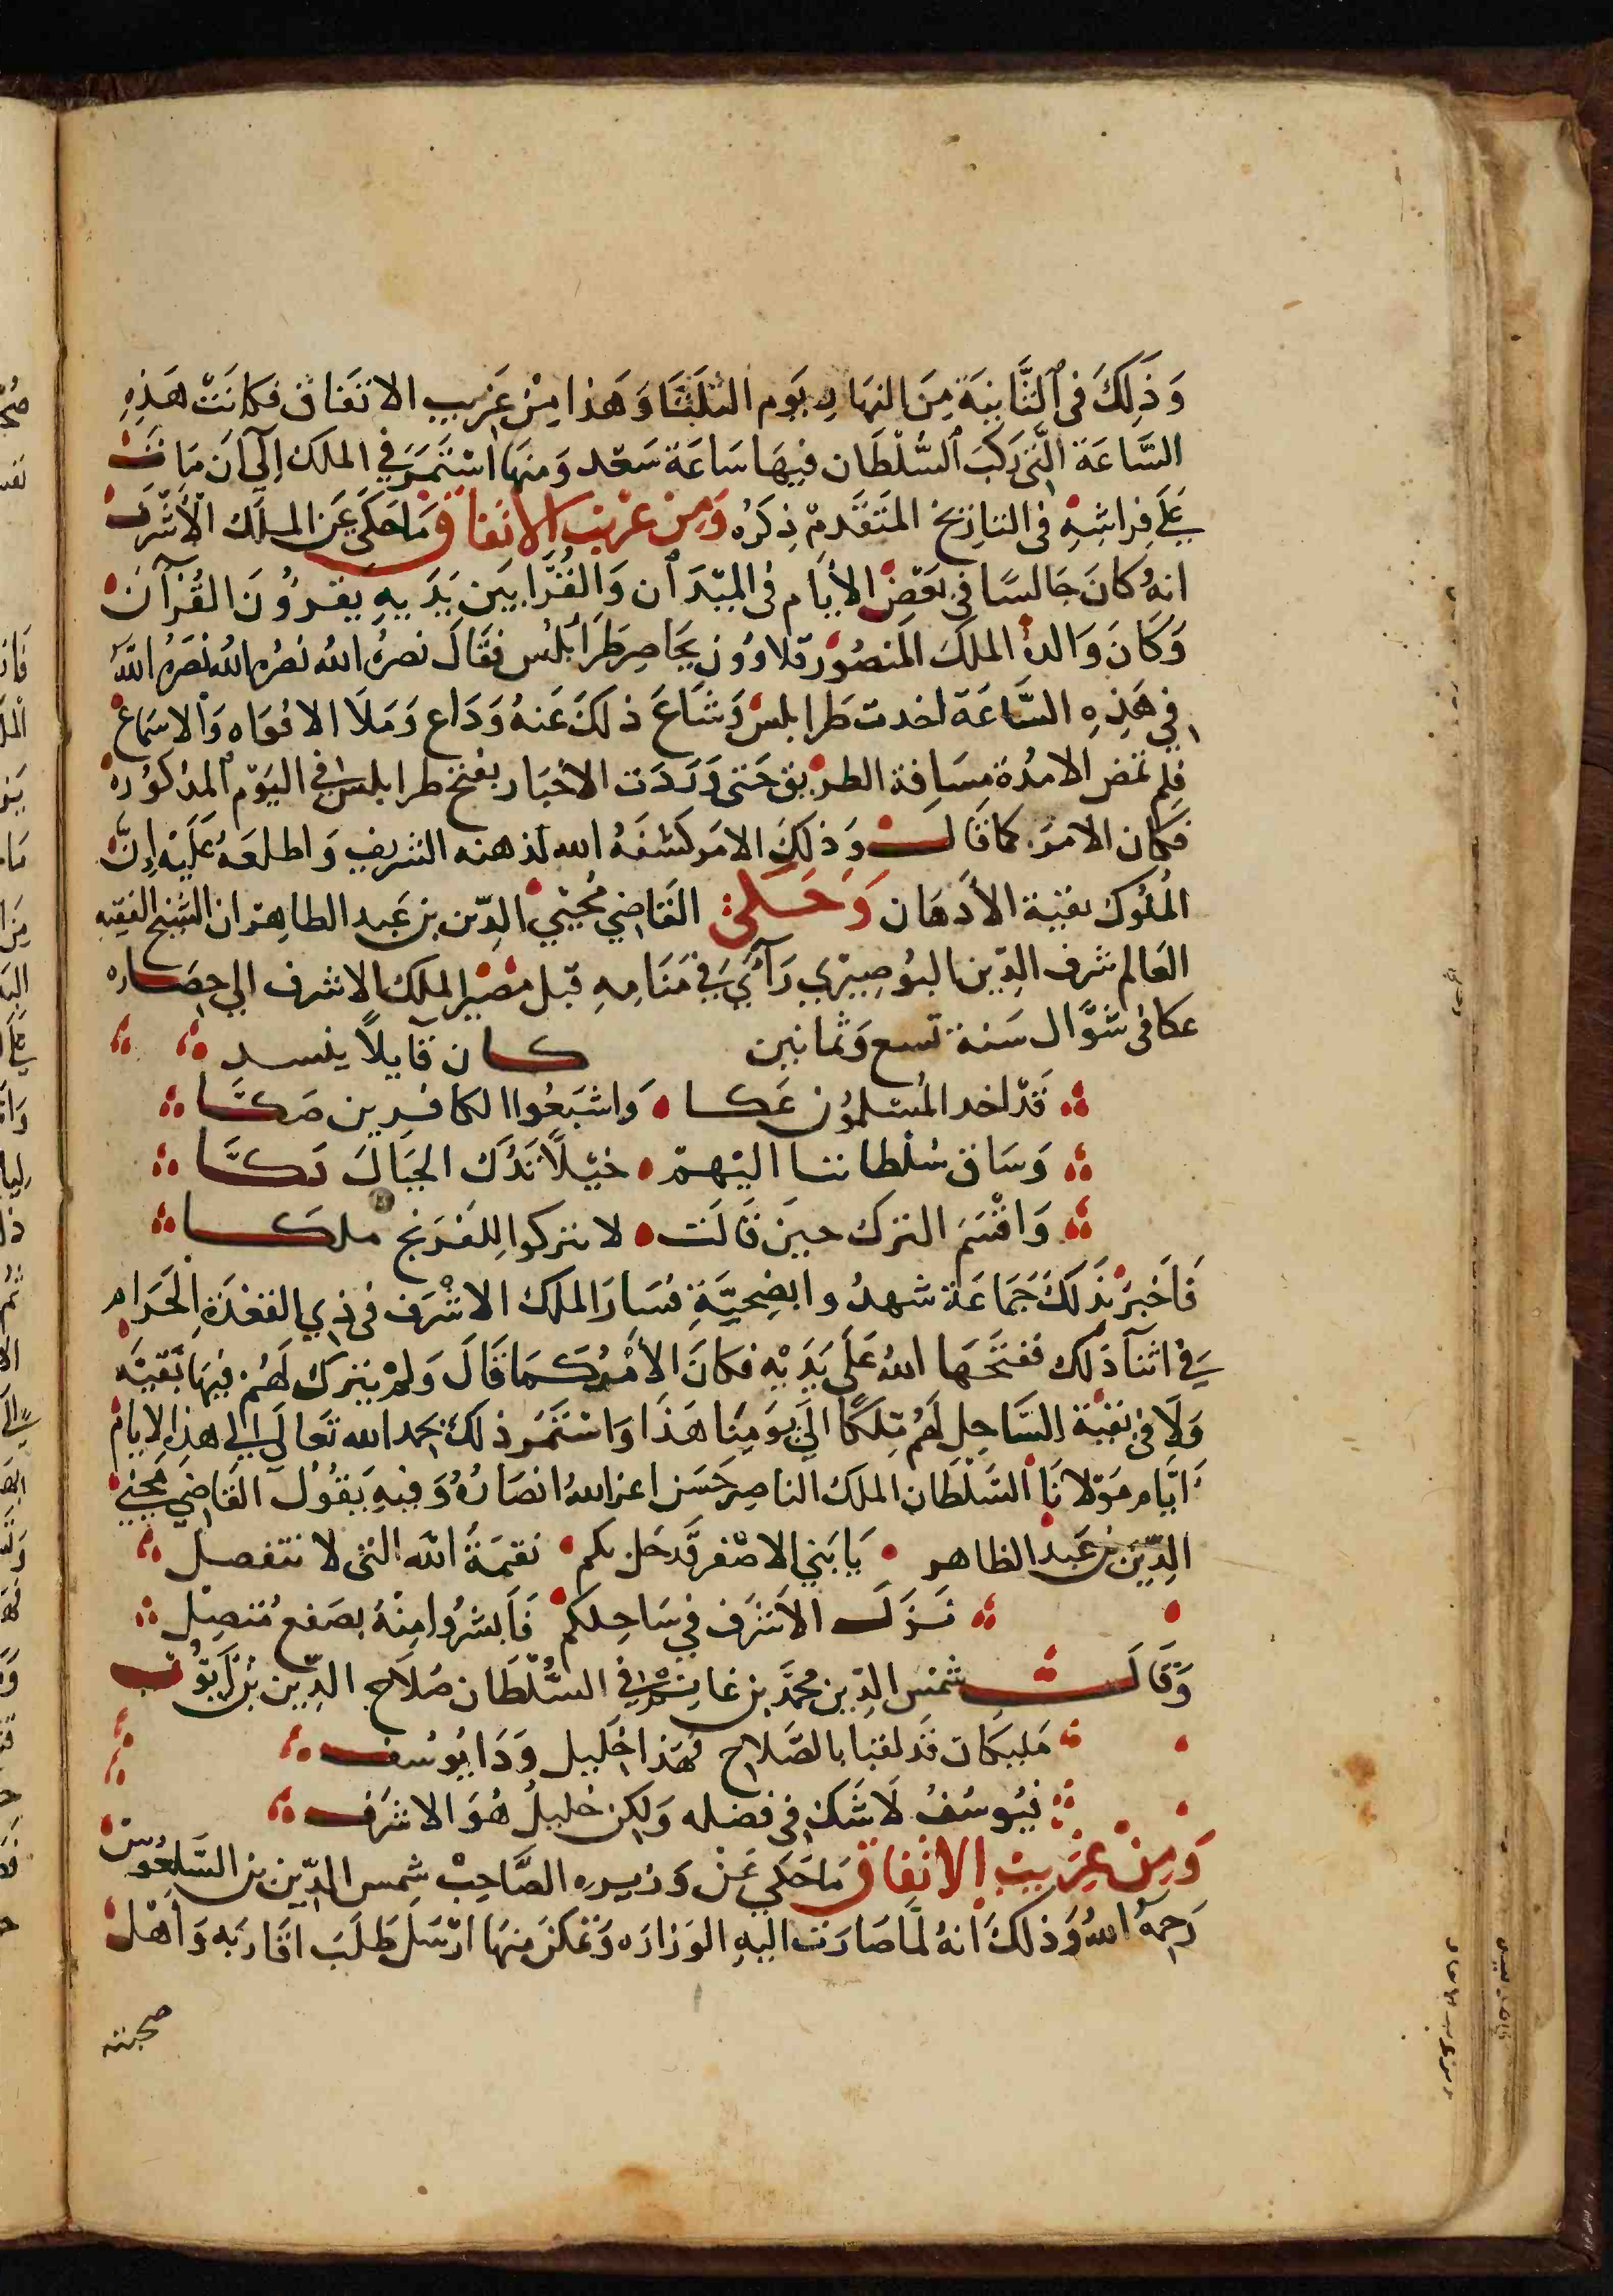 وَذَلِكَ فى الثَّانِيَة مِنَ النهَار يَوم الثلَثَا وَهَذا مِنْ غَرِيب الاتفَاق فكانَتْ هَذِهِ
السَّاعَة الَّتى رَكبَ السُّلْطَان فيهَا سَاعَة سَعْد وَمنهَا اسْتَمَرَ فِي الملك إلَى اَن مَاتَ
عَلَى فِرَاشِهِ فى التاريخ المتَقَدمْ ذِكرُه وَمِنْ غَرْيب الاتفَاق مَا حَكَى عَن الملك الأشْرَف
انهُ كانَ جَالسًا فى بَعْضِ الأيَام فى الميْدَان وَالقُرَّا بَين يَدَيهِ يَقرَؤُونَ القُرْآنَ
وَكَانَ وَالدهُ الملكَ المَنصُوْر قلاوُون يحَاصِر طَرَابُلُس فقَالَ نصرُه اللهُ نصرُه اللهُ نصَرهُ اللهُ
فى هَذِهِ السَّاعَة اخدت طَرابلسْ وَشَاعَ ذلكَ عَنهُ وَذَاع وَمَلَا الافوَاه وَالاسمَاعْ
فلم تمض الامدُة مسَافة الطرْيق حَتى وَرَدَت الاخبَار بفتْح طرابلس فى اليَوْم المذكوره
فكان الامرَ كما قَالَ وَذلِكَ الامَر كشفَهُ الله لذهنه الشريف وَاطلعَهُ عَلَيْه إنَّ
المُلوكَ نقيَة الأذهَان وَحَكى القَاضى مُحْيي الدِّين بن عَبد الطاهر ان الشيخ الفقيه
العَالم شَرف الدِّين البُوصِيْرِي رَأَى فِي مَنَامِهِ قبْل مَصِيْر الملك الاشرف الى حِصَاره
عكا فى شوَّال سَنة تسع وَثمانين كان قايلاً ينسد
قَدْ اخد المُسْلمُون عَكا وَاشبَعُوا الكافرين صَكَّا
وَسَاق سُلْطاننا اليْهمْ خيْلاً تَدُك الجبَالَ دَكَّا
وَاقْسَم الترك حينَ قَالَت لا تتركوا للفَرَنج ملكا
فَأَخبرَ بذَلكَ جَمَاعَة شهدُوا بضِحيَّةِ فسَارَ الملك الاشْرَف فى ذِي القعْدَة الحَرَام
فِي اثنآ ذَلك ففتَحَها اللهُ عَلَى يَدَيْهِ فكانَ الأَمْرُ كَمَا قَالَ وَلمْ يَترك لَهُم فيهَا بَقيَه
وَلَا فى بَقيَة السَّاحِل لَهُمْ مَلِكًا الَى يَومِنَا هَذَا وَاسْتَمَر ذلكَ بحمد الله تَعَالَى الى هذه الايام
اَيَّام مَوْلانَا السُّلْطَان الملك الناصِر حَسَن اعز اللهُ انصَارهُ وَفيهِ يَقُوْل القَاضى مُحْيي
الدِّين بن عَبد الظاهر يَا بَني الاصْفر قَد حَل بكم نقمَةُ اللَه التى لا تنفصل
نَزَلَ الأَشرَف فى سَاحِلكم فَأَبشرُوا مِنْهُ بصَفع مُتصِل
وَقَالَ شمْس الدِّين محمَّد بن غانم فى السُّلْطَان صَلَاح الدِّين بن أَيّوْب
مَليكان قَد لقبَا بالصَّلاح فهَذا خَليل وَذَا يُوسُف
فيُوسُفُ لَا شَك فى فضله وَلكن خليلُ هُوَ الاشرَف
وَمِنْ غَرِيبْ الاتِفاق مَا حَكى عَنْ وَزيره الصَّاحِبْ شمس الدِّين بن السَّلعُوس
رَحمهُ اللهُ وَذلكَ أَنهُ لمَّا صَارَت اليهِ الوَزارَه وَتمكنَ منهَا ارْسَل طَلَبَ اقَاربَه وَأَهْل
صحبته